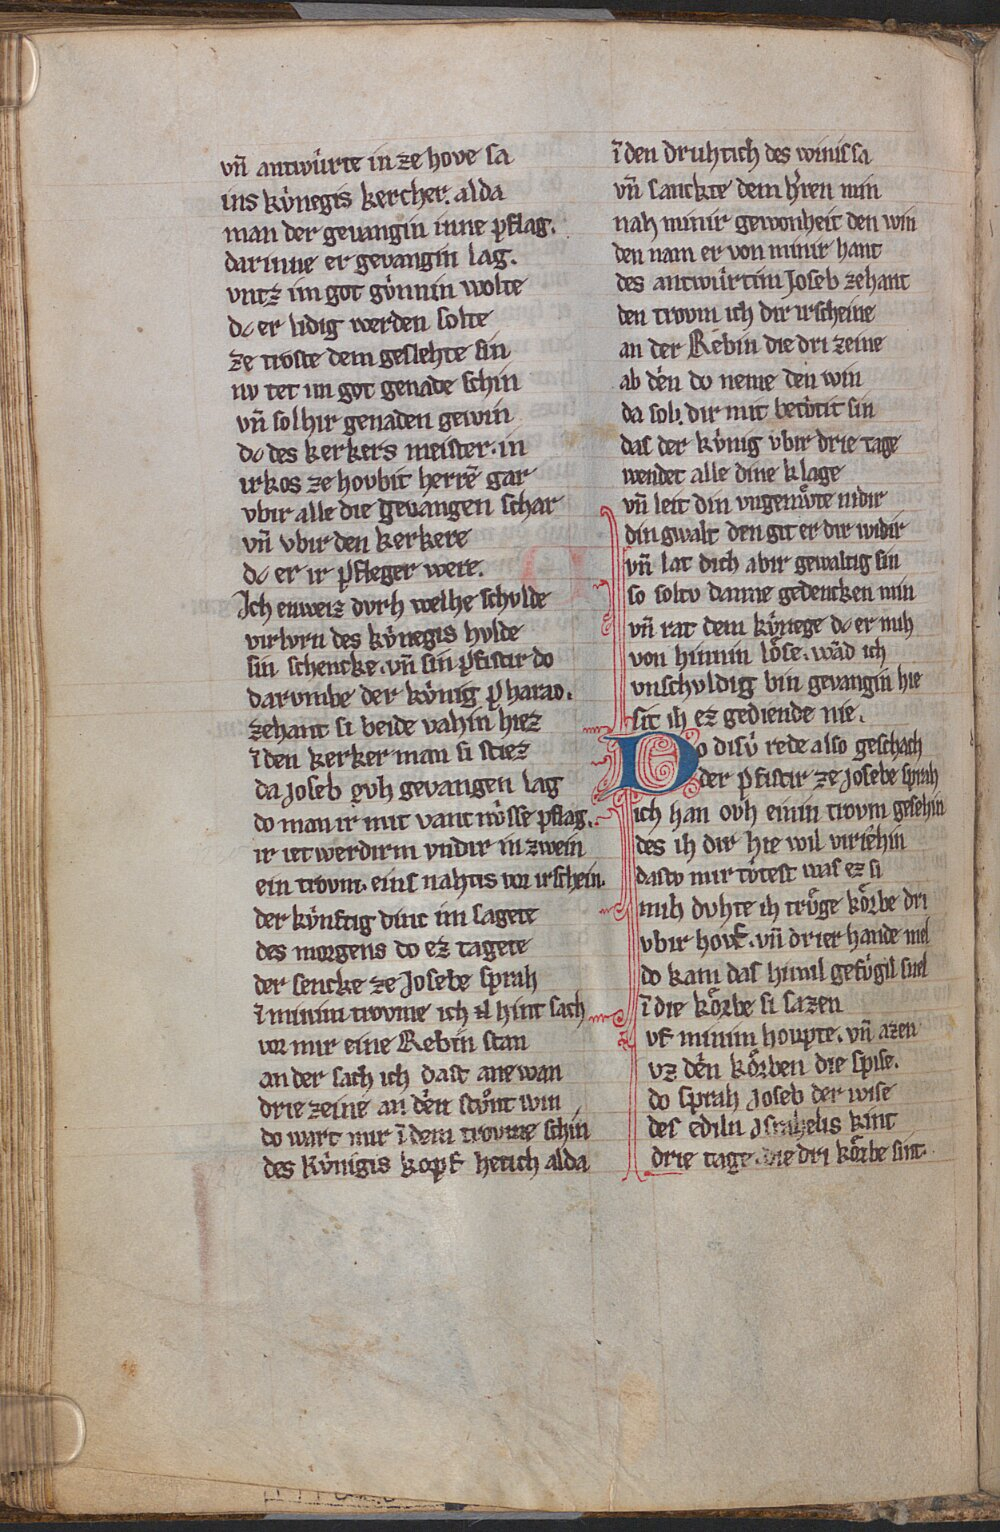 vn̄ antwu̍rte in ze hove sa
ins ku̍negis kercher. alda
man der gevangin inne pflag.
darinne er gevangin lag.
vntz im got go̍nnin wolte
dc er lidig werden solte
ze troste dem geslehte sin
nv tet im got genade schin
vn̄ solhir genaden gewin
dc des kerkers meister. in
irkos ze hovbit herrē gar
vbir alle die gevangen schar
vn̄ vbir den kerkere
dc er ir pfleger were.
Ich enweiz dvrh welhe schvlde
virlvrn des ku̍negis hvlde
sin schencke. vn̄ sin pfistir do
darvmbe der ku̍nig pharao.
zehant si beide vahin hiez
ī den kerker man si stiez
da joseb ovh gevangen lag
do man ir mit vancnu̍sse pflag.
ir ietwerdirm vndir in zwein
ein trovm. eins nahtis vor irschein.
der ku̍nftig dinc im sagete
des morgens do ez tagete
der sencke ze Josebe sprah
ī minim trovme ich hint sach
vor mir eine Rebin stan
an der sach ich dast ane wan
drie zeine an de̍n stv̊nt win
do wart mir ī dem trovme schin
des ku̍nigis kopf hetich alda
ī den druhtich des winis sa
vn̄ sanckte dem h̍ren min
nah minir gewonheit den win
den nam er von minir hant
des antwu̍rtim Joseb zehant
den trovm ich dir irscheine
an der Rebin die dri zeine
ab de̍n do neme den win
da soltv dir mit beto̍tit sin
das der ku̍nig vbir drie tage
wendet alle dine klage
vn̄ leit din vngemv̊te nidir
din gwalt den git er dir widir
vn̄ lat dich abir gewaltig sin
so soltv danne gedencken min
vn̄ rat dem ku̍nege dc er mih
von hinnin lo̍se. wād ich
vnschvldig bin gevangin hie
sit ih ez gediende nie.
Do disv̍ rede also geschach
der pfistir ze josebe sprah
ich han ovh einin trovm gesehin
des ih dir hie wil viriehin
dastv mir to̍test was ez si
mih dvhte ih trv̊ge ko̍rbe dri
vbir hovf. vn̄ drier hande mel
do kam das himil gefv̍gil snel
ī die ko̍rbe si sazen
vf minim houpte. vn̄ azen
vz de̍n ko̍rben die spise.
do sprah Joseb der wise
des ediln Jsrahelis kint
drie tage. die dri ko̍rbe sint.